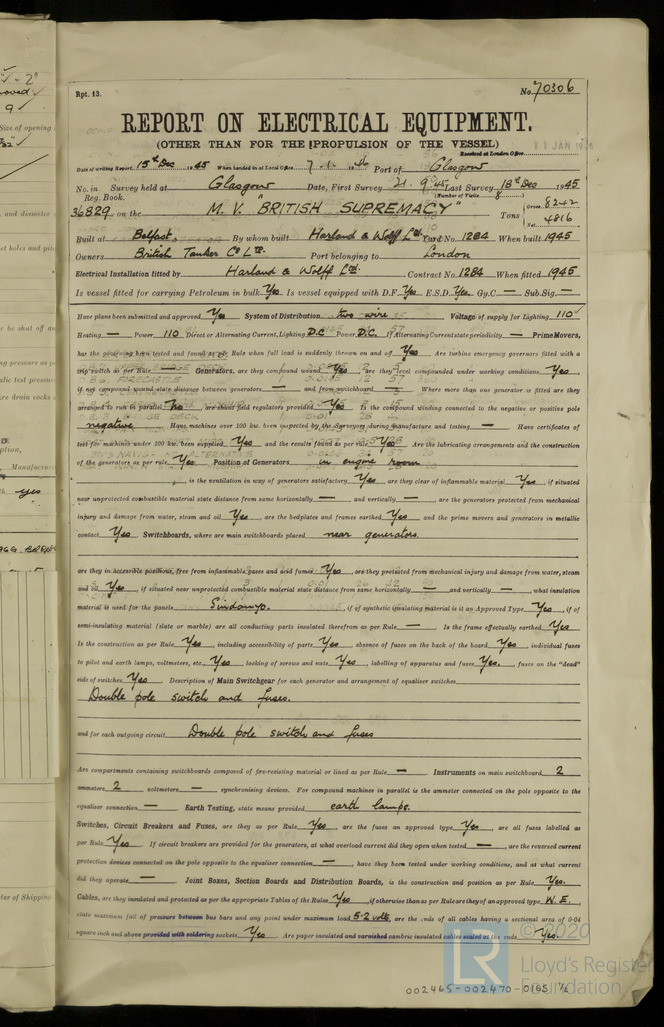 Rpt. 13.
No. 70306
REPORT ON ELECTRICAL EQUIPMENT.
(OTHER THAN FOR THE PROPULSION OF THE VESSEL)
Received at London Office
Date of writing Report 15th Dec 1945 When handed in at Local Office 7.1. 1946 Port of Glasgow
No. in Survey held at Glasgow Date, First Survey 21.9.45 Last Survey 18th Dec 1945
Reg. Book. (Number of Visits 8)
36829 on the M.V. "BRITISH SUPREMACY" Tons Gross 8242 Net 4816
Built at Belfast By whom built Harland & Wolff Ltd. Yard No. 1284 When built 1945
Owners British Tanker Co Ltd. Port belonging to London
Electrical Installation fitted by Harland & Wolff Ltd. Contract No. 1284 When fitted 1945
Is vessel fitted for carrying Petroleum in bulk Yes Is vessel equipped with D.F. Yes E.S.D. Yes Gy.C. — Sub.Sig. —
Have plans been submitted and approved Yes System of Distribution two wire Voltage of supply for Lighting 110
Heating — Power 110 Direct or Alternating Current, Lighting D.C. Power D.C. If Alternating Current state periodicity — Prime Movers,
has the governing been tested and found as per Rule when full load is suddenly thrown on and off Yes Are turbine emergency governors fitted with a
trip switch as per Rule Generators, are they compound wound Yes, are they level compounded under working conditions Yes,
if not compound wound state distance between generators — and from switchboard — Where more than one generator is fitted are they
arranged to run in parallel No, are shunt field regulators provided Yes Is the compound winding connected to the negative or positive pole
negative Have machines over 100 kw. been inspected by the Surveyors during manufacture and testing — Have certificates of
test for machines under 100 kw. been supplied Yes and the results found as per rule Yes Are the lubricating arrangements and the construction
of the generators as per rule Yes Position of Generators in engine room
, is the ventilation in way of generators satisfactory Yes, are they clear of inflammable material Yes, if situated
near unprotected combustible material state distance from same horizontally — and vertically —, are the generators protected from mechanical
injury and damage from water, steam and oil Yes, are the bedplates and frames earthed Yes and the prime movers and generators in metallic
contact Yes Switchboards, where are main switchboards placed near generators.
are they in accessible positions, free from inflammable gases and acid fumes Yes, are they protected from mechanical injury and damage from water, steam
and oil Yes, if situated near unprotected combustible material state distance from same horizontally — and vertically —, what insulation
material is used for the panels Sindanyo., if of synthetic insulating material is it an Approved Type Yes, if of
semi-insulating material (slate or marble) are all conducting parts insulated therefrom as per Rule — Is the frame effectually earthed Yes
Is the construction as per Rule Yes, including accessibility of parts Yes absence of fuses on the back of the board Yes, individual fuses
to pilot and earth lamps, voltmeters, etc. Yes locking of screws and nuts Yes, labelling of apparatus and fuses Yes., fuses on the "dead"
side of switches Yes Description of Main Switchgear for each generator and arrangement of equaliser switches
Double pole switch and fuses.
and for each outgoing circuit Double pole switch and fuses
Are compartments containing switchboards composed of fire-resisting material or lined as per Rule — Instruments on main switchboard 2
ammeters 2 voltmeters — synchronising devices. For compound machines in parallel is the ammeter connected on the pole opposite to the
equaliser connection — Earth Testing, state means provided earth lamps.
Switches, Circuit Breakers and Fuses, are they as per Rule Yes, are the fuses an approved type Yes, are all fuses labelled as
per Rule Yes If circuit breakers are provided for the generators, at what overload current did they open when tested —, are the reversed current
protection devices connected on the pole opposite to the equaliser connection —, have they been tested under working conditions, and at what current
did they operate — Joint Boxes, Section Boards and Distribution Boards, is the construction and position as per Rule Yes.
Cables, are they insulated and protected as per the appropriate Tables of the Rules Yes, if otherwise than as per Rule are they of an approved type W.E.
state maximum fall of pressure between bus bars and any point under maximum load 5.2 volts, are the ends of all cables having a sectional area of 0·04
square inch and above provided with soldering sockets Yes Are paper insulated and varnished cambric insulated cables sealed at the ends Yes.
© 2020
LR
Lloyd's Register
Foundation
002465-002470-0165 1/2